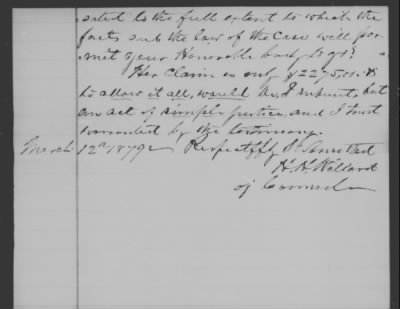 sated to the full extent to which the
facts and the law of the case will per-
mit your Honorable body to go.
Her claim is only $2275.00. &
to allow it all, would be, I submit, but
an act of simple justice, and I trust
warranted by the testimony.
March 12th 1879 Respectfully Submitted
H. H. Willard
of Counsel